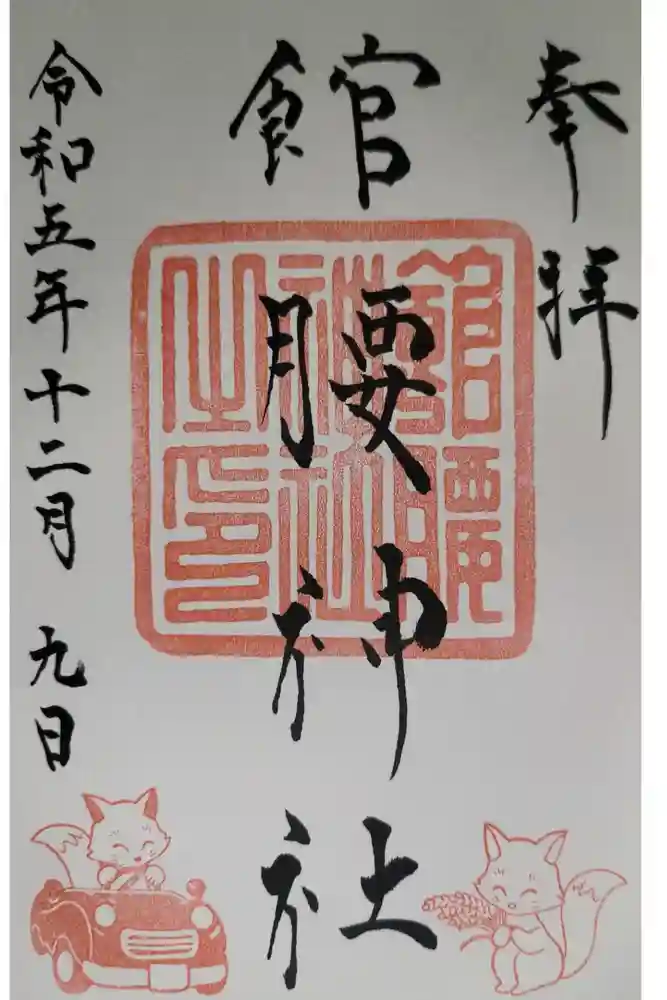 奉拝
館腰神社
館腰神社之印
令和五年十二月 九日